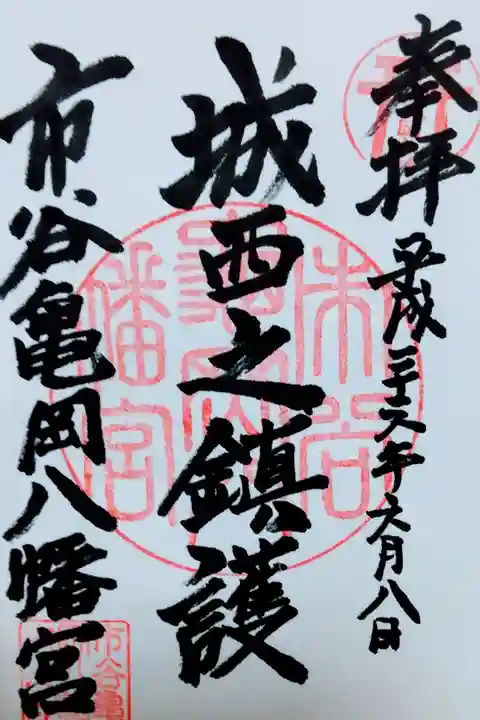 奉拝
平成二十六年六月八日
城西之鎮護
市谷亀岡八幡宮